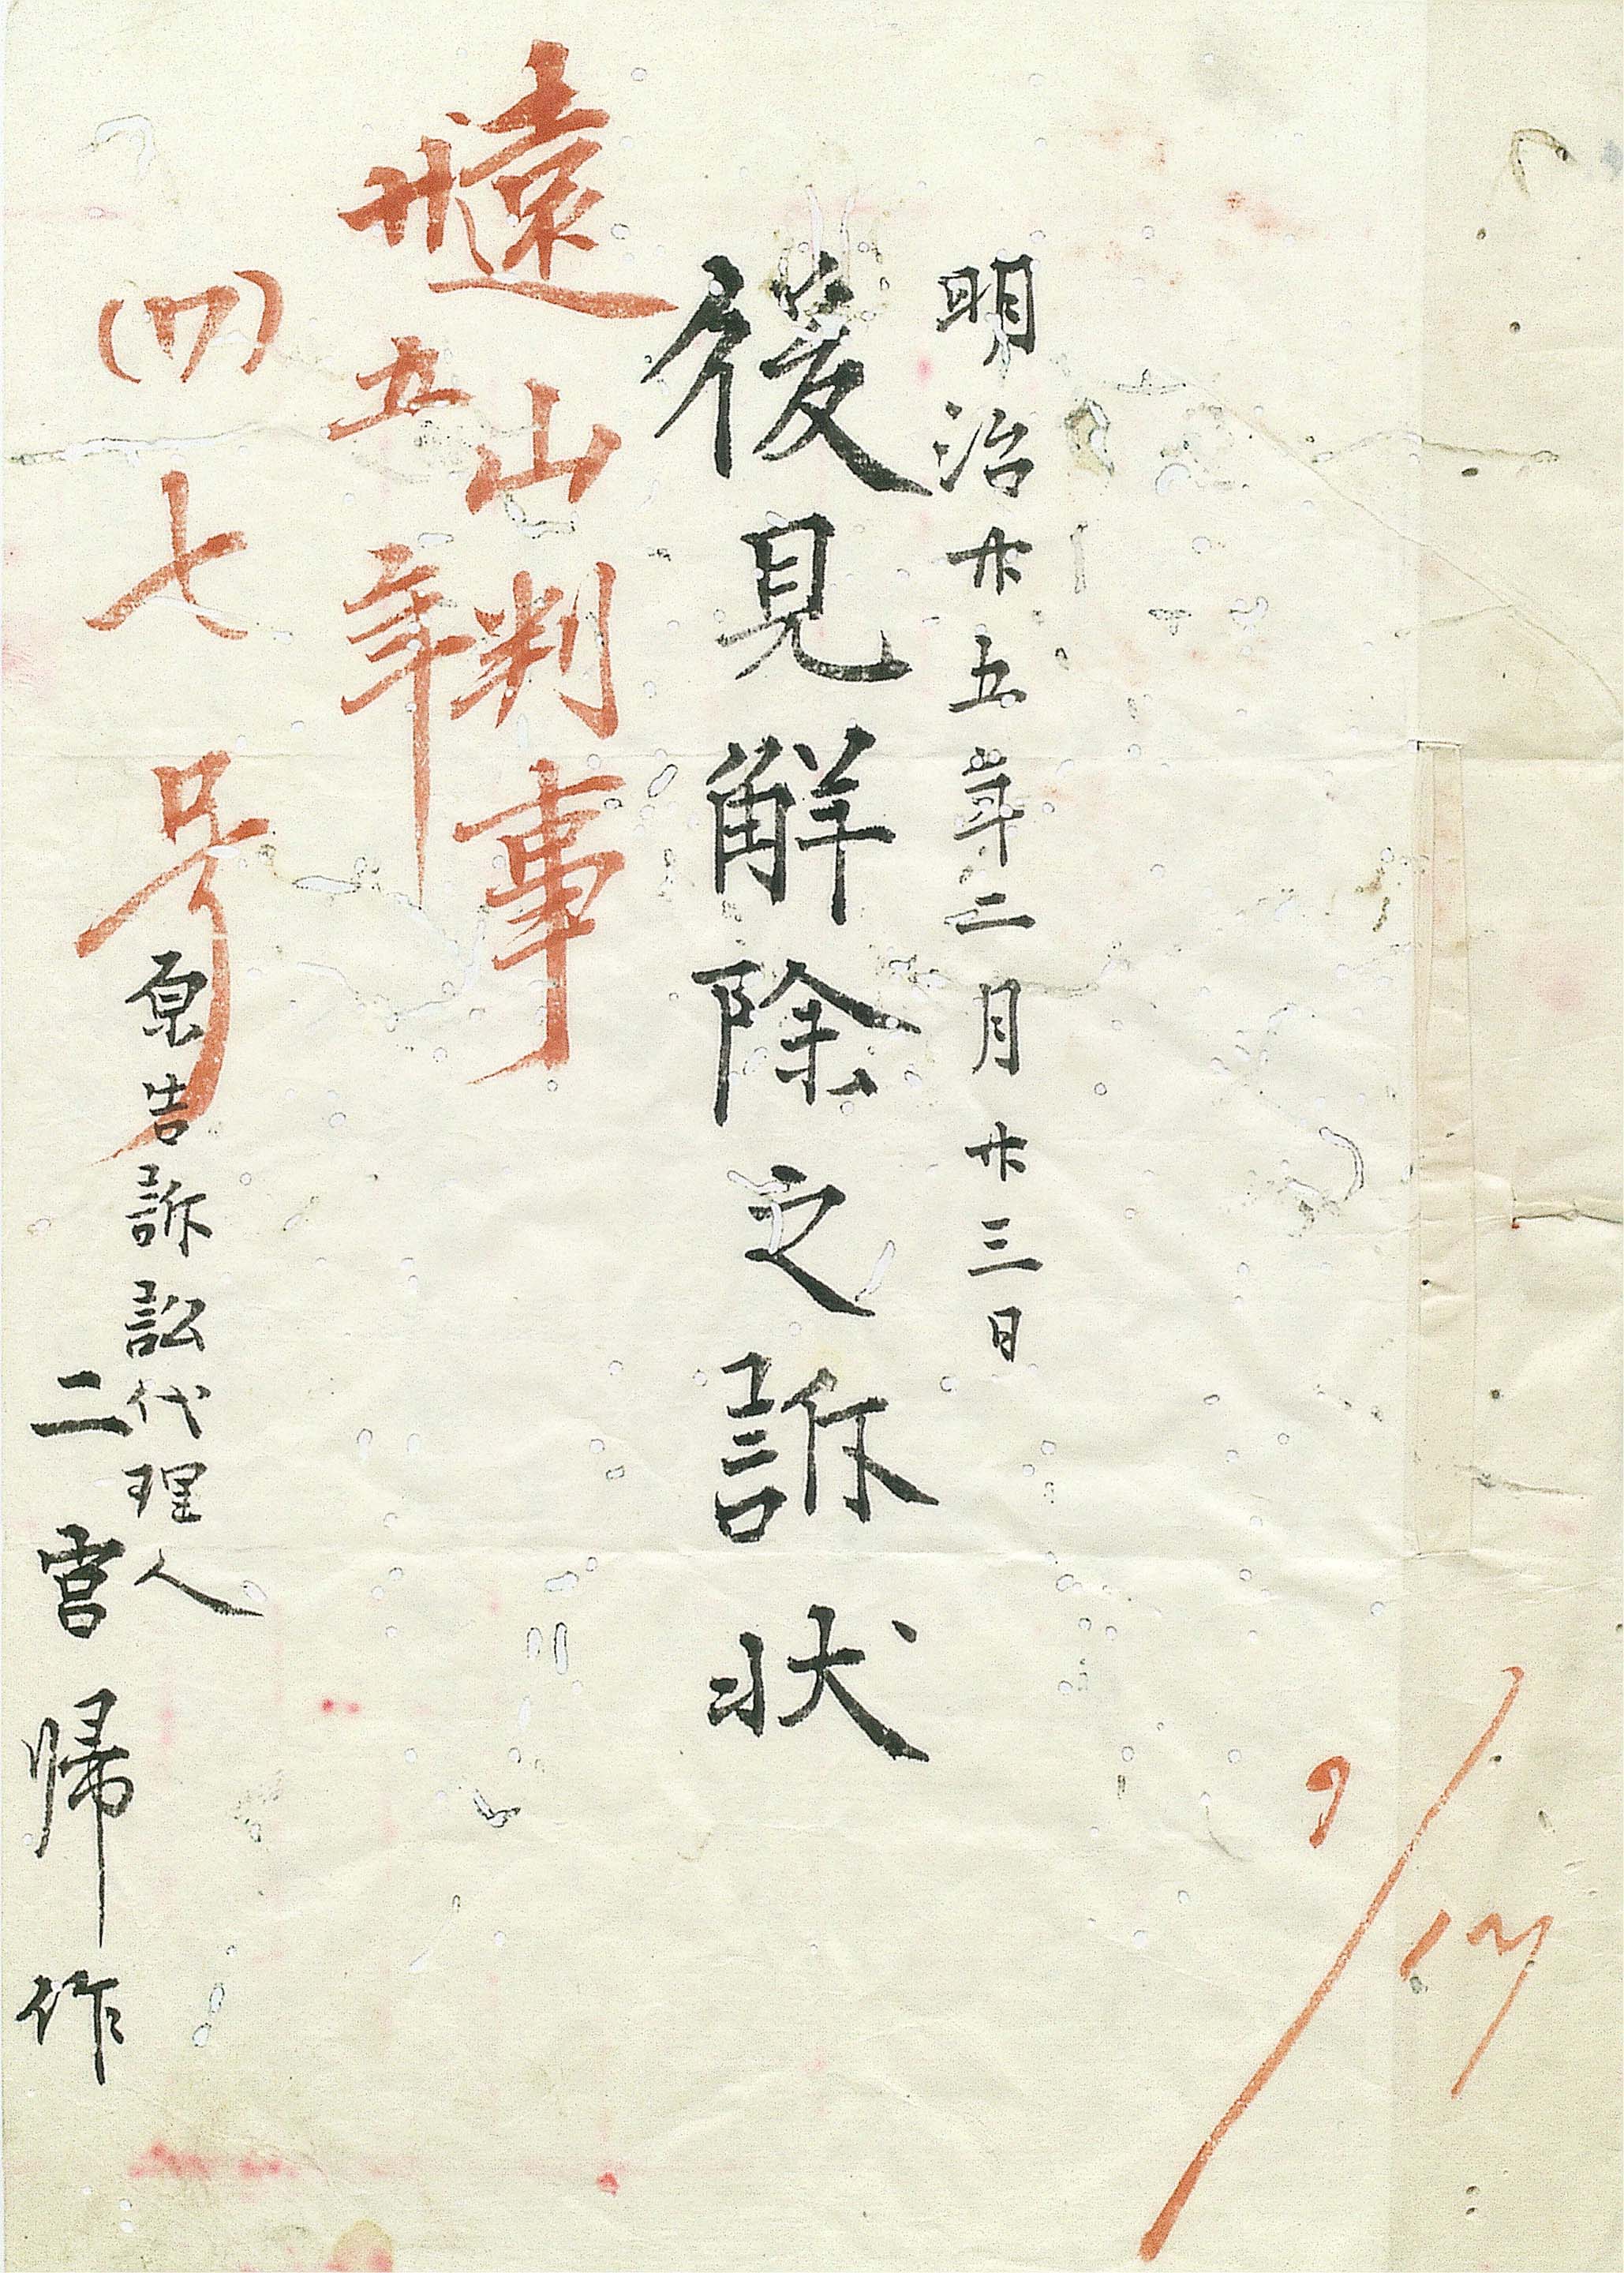 明治廿五年二月廿三日
後見解除之訴状
遠山判事
廿五年
(ワ)七号
原告訴訟代理人
二宮帰作